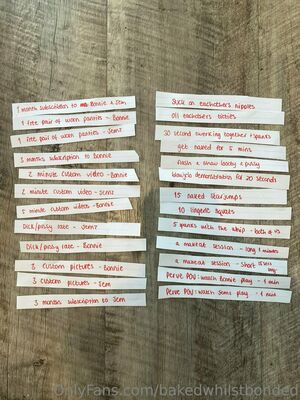 1 month subscription to Bonnie & Jem
1 free pair of worn panties - Bonnie
1 free pair of worn panties - Jemz
3 months subscription to Bonnie
2 minute custom video - Bonnie
2 minute custom video - Jemz
5 minute custom videos - Bonnie
Dick/pussy rate - Jemz
Dick/pussy rate - Bonnie
3 custom pictures - Bonnie
3 custom pictures - Jem
3 months subscription to Jem
Suck on eachothers nipples
Oil eachothers titties
30 second twerking together + spanks
get naked for 5 mins
flash & show booty & pussy
blowjob demonstration for 20 seconds
15 naked starjumps
10 lingerie squats
5 spanks with the whip - both of us
a makeout session - long 1 minutes
a makeout session - short 15 secs
Perve POV: watch Bonnie play - 1 min
Perve POV: watch Jemz play - 1 mins
OnlyFans.com/bakedwhilstbonded